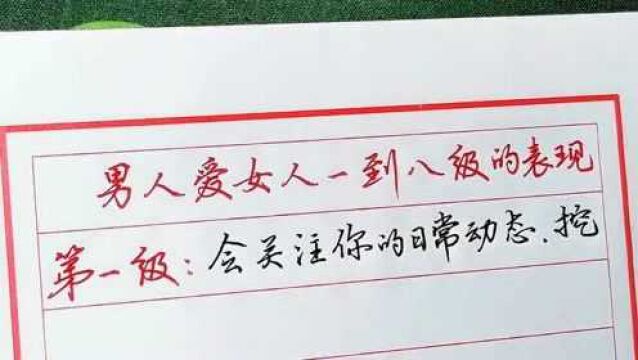 男人爱女人一到八级的表现
第一级：会关注你的日常动态、挖